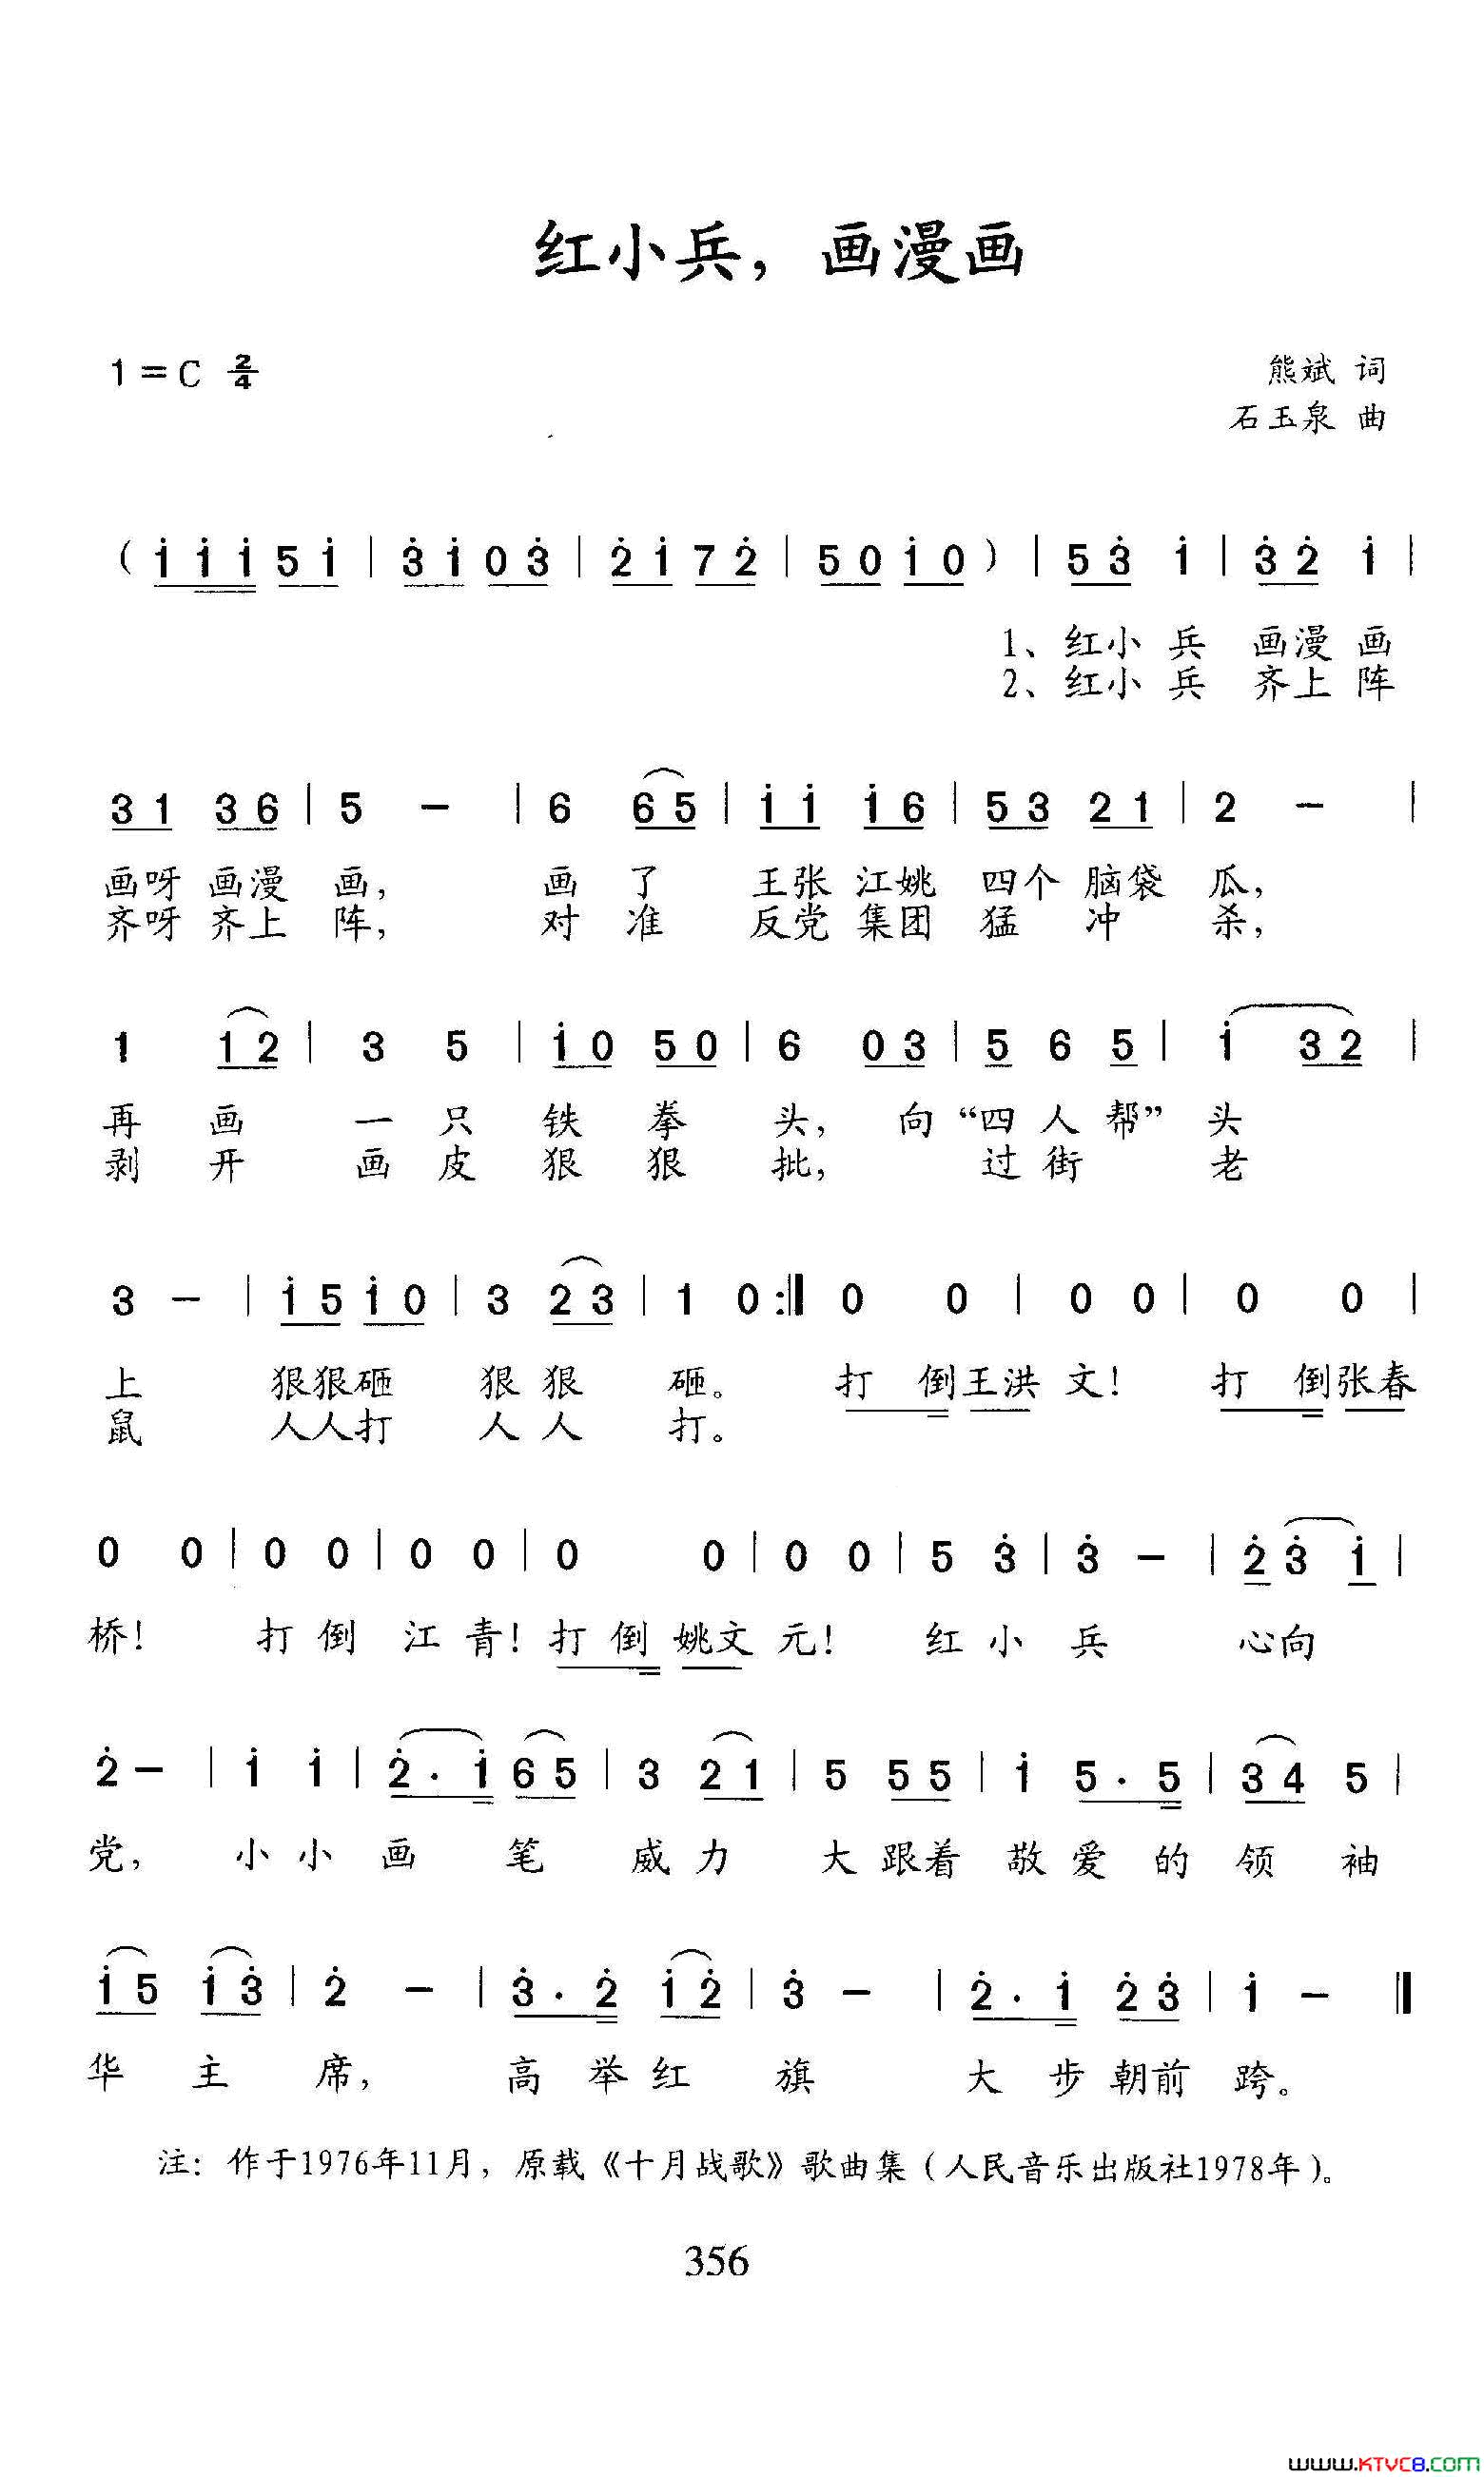 红小兵，画漫画
1=C 2/4
熊斌 词
石玉泉 曲
( i i i 5 i | 3 i 0 3 | 2 i 7 2 | 5 0 i 0 ) | 5 3 i | 3 2 i |
1、红小 兵 画漫 画
2、红小 兵 齐上 阵
3 1 3 6 | 5 － | 6 6 5 | i i i 6 | 5 3 2 1 | 2 － |
画呀 画漫 画， 画 了 王张 江姚 四个 脑袋 瓜，
齐呀 齐上 阵， 对 准 反党 集团 猛 冲 杀，
1 1 2 | 3 5 | i 0 5 0 | 6 0 3 | 5 6 5 | i 3 2 |
再 画 一 只 铁 拳 头， 向“四 人 帮”头
剥 开 画 皮 狠 狠 批， 过 街 老
3 － | i 5 i 0 | 3 2 3 | 1 0 :‖ 0 0 | 0 0 | 0 0 |
上 狠狠砸 狠 狠 砸。 打 倒王洪 文！ 打 倒张春
鼠 人人打 人 人 打。
0 0 | 0 0 | 0 0 | 0 0 | 0 0 | 5 3 | 3 － | 2 3 i |
桥！ 打 倒 江 青！打 倒 姚文 元！ 红 小 兵 心向
2 － | i i | 2 · i 6 5 | 3 2 1 | 5 5 5 | i 5 · 5 | 3 4 5 |
党， 小 小 画 笔 威 力 大 跟着 敬 爱 的 领 袖
i 5 i 3 | 2 － | 3 · 2 i 2 | 3 － | 2 · i 2 3 | i － ‖
华 主 席， 高 举 红 旗 大 步 朝前 跨。
注：作于1976年11月，原载《十月战歌》歌曲集（人民音乐出版社1978年）。
356
www.KTVC8.com